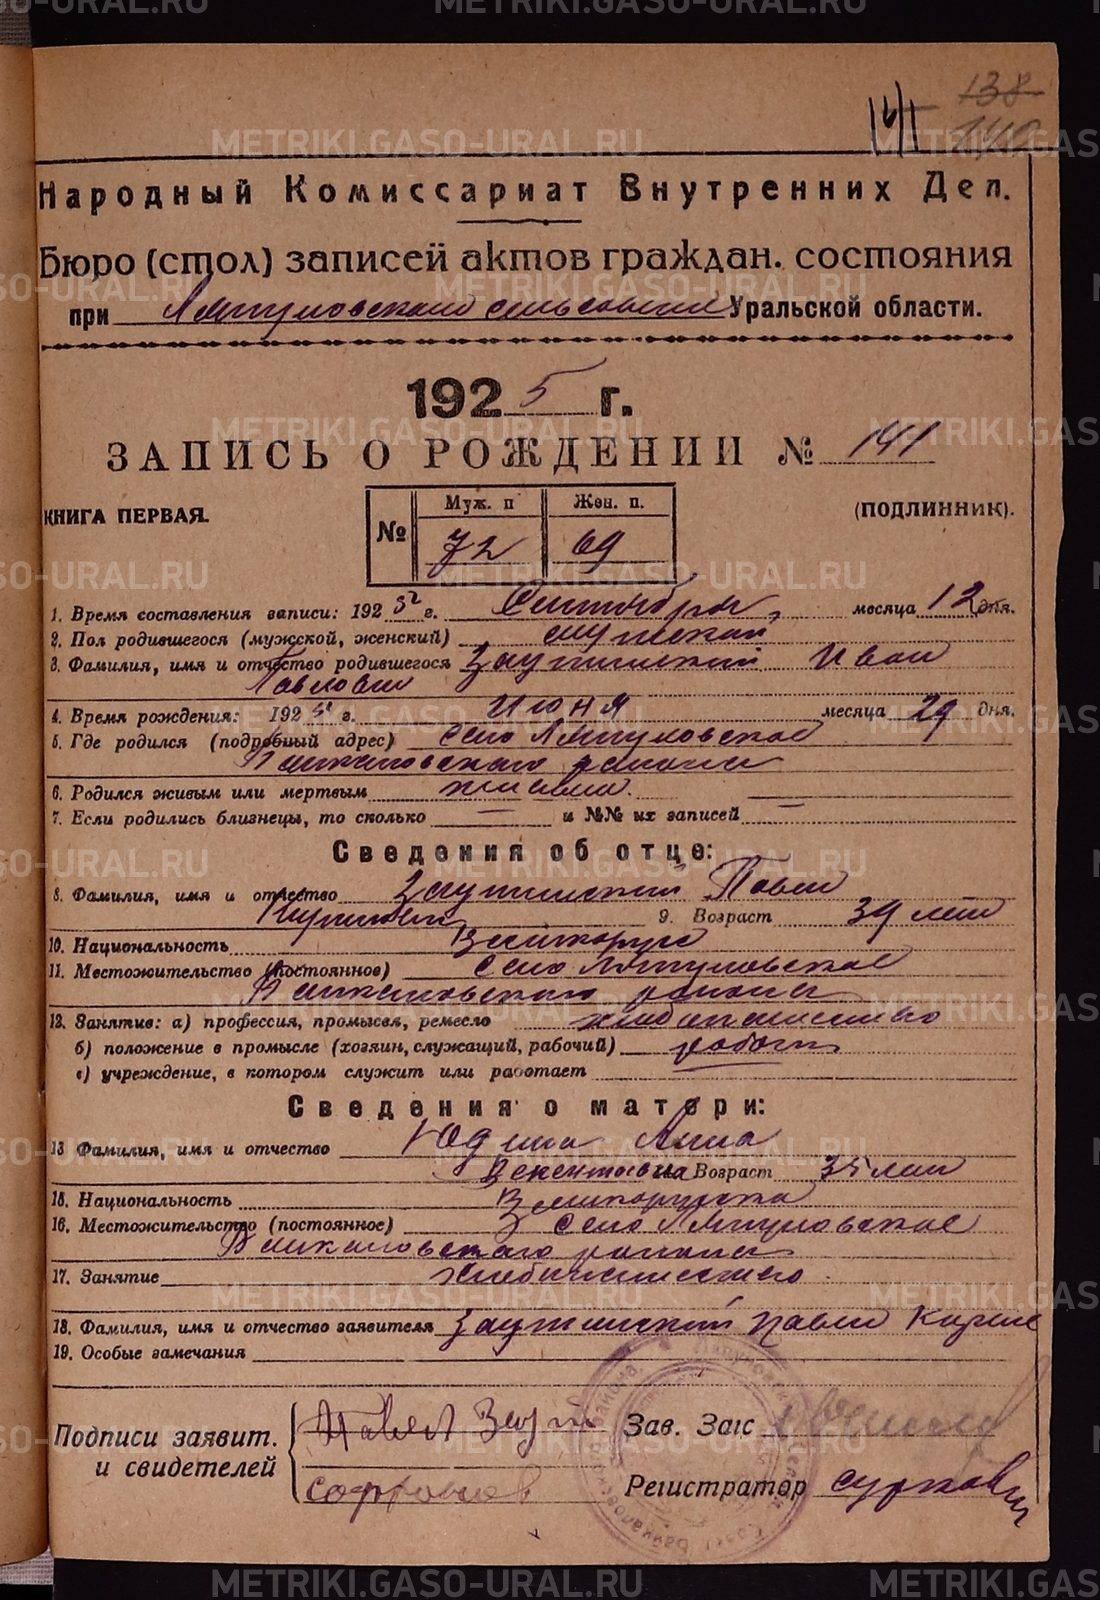 METRIKI.GASO-URAL.RU
141 138 140
Народный Комиссариат Внутренних Дел.
Бюро (стол) записей актов граждан. состояния
при Ляпуновского сельсовета Уральской области.
1925 г.
ЗАПИСЬ О РОЖДЕНИИ № 141
КНИГА ПЕРВАЯ. (ПОДЛИННИК).
№ Муж. п Жен. п.
72 69
1. Время составления записи: 1925 г. Сентября месяца 12 дня.
2. Пол родившегося (мужской, женский) мужской
3. Фамилия, имя и отчество родившегося Заутинский Иван
Павлович
4. Время рождения: 1925 г. Июня месяца 29 дня.
5. Где родился (подробный адрес) село Ляпуновское
Байкаловского района
6. Родился живым или мертвым живым
7. Если родились близнецы, то сколько — и №№ их записей —
Сведения об отце:
8. Фамилия, имя и отчество Заутинский Павел
9. Возраст 39 лет
10. Национальность Великорус
11. Местожительство (постоянное) Село Ляпуновское
Байкаловского района
12. Занятие: а) профессия, промысел, ремесло хлебопашество
б) положение в промысле (хозяин, служащий, рабочий)
в) учреждение, в котором служит или работает
Сведения о матери:
13 Фамилия, имя и отчество Юдина Анна
Возраст 35 лет
15. Национальность Великорусска
16. Местожительство (постоянное) Село Ляпуновское
Байкаловского района
17. Занятие хлебопашество
18. Фамилия, имя и отчество заявителя Заутинский Павел Кирил
19. Особые замечания
Подписи заявит. и свидетелей
Павел Заут
Зав. Загс
Регистратор